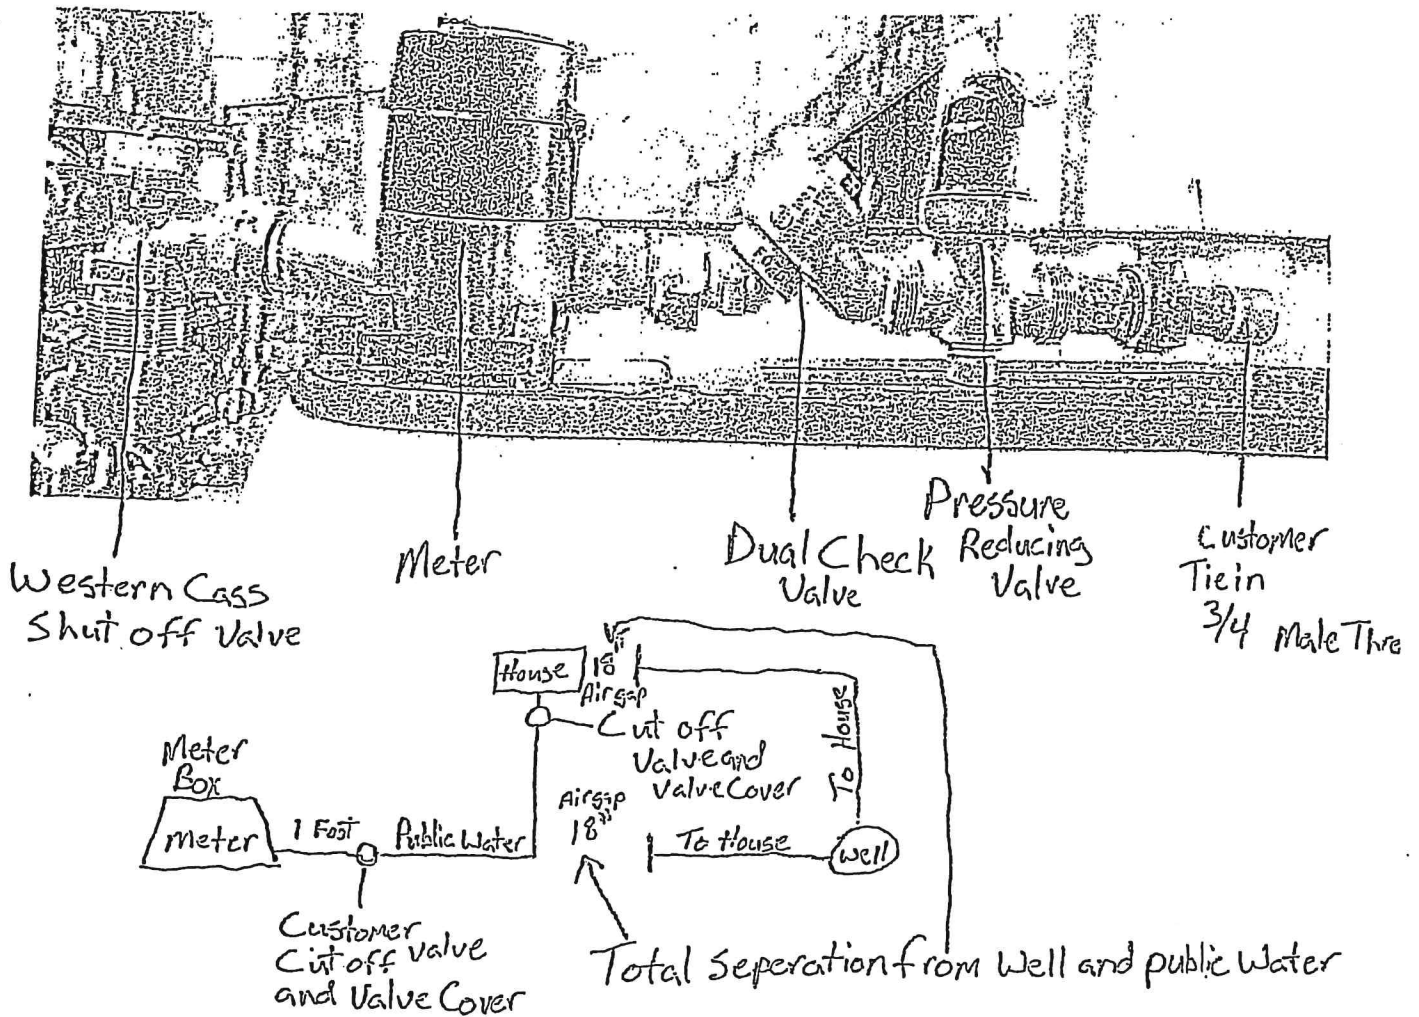 Western Cass
Shut off Valve
Meter
Dual Check
Valve
Pressure
Reducing
Valve
Customer
Tie in
3/4 Male Thre
House
18"
Airgap
Cut off
Valve and
Valve Cover
To House
Meter
Box
Meter
1 Foot
Public Water
Airgap
18"
To House
Well
Customer
Cut off Valve
and Valve Cover
Total Seperation from Well and public Water